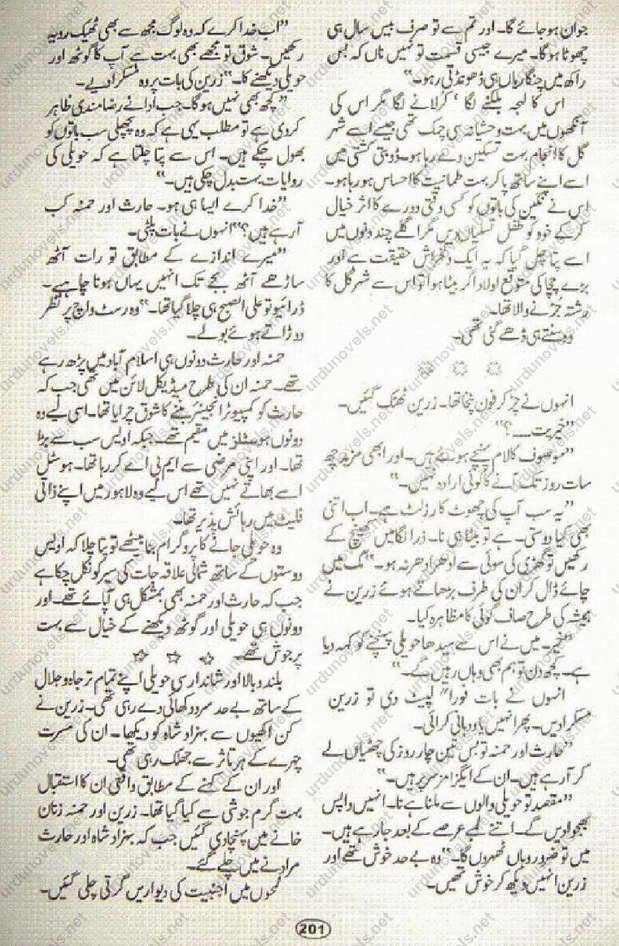 جوان ہو جائے گا۔ اور تم سے تو صرف بیس سال ہی
چھوٹا ہوگا۔ میرے جیسی قسمت تو نہیں ناں کہ بس
راکھ میں چنگاریاں ہی ڈھونڈتی رہو۔“
اس کا لہجہ بلکنے لگا‘ کرلانے لگا مگر اس کی
آنکھوں میں بہت وحشیانہ سی چمک تھی جیسے اسے شہر
گل کا انجام بہت تسکین دے رہا ہو۔ ڈوبتی کشتی میں
اسے اپنے ساتھ پا کر بہت طمانیت کا احساس ہو رہا ہو۔
اس نے نگین کی باتوں کو کسی وقتی دورے کا اثر خیال
کر کے خود کو طفل تسلیاں دیں مگر اگلے چند دنوں میں
اسے پتا چل گیا کہ یہ ایک دلخراش حقیقت ہے اور
بڑے چچا کی متوقع اولاد اگر بیٹا ہوا تو اس سے شہر گل کا
رشتہ جڑنے والا تھا۔
وہ سنتے ہی ڈھے گئی تھی۔
انہوں نے چڑ کر فون پٹخا تھا۔ زرین ٹھٹک گئیں۔
”خیریت....؟“
”موصوف کالام پہنچے ہوئے ہیں۔ اور ابھی مزید چھ
سات روز تک آنے کا کوئی ارادہ نہیں۔“
”یہ سب آپ کی چھوٹ کا رزلٹ ہے۔ اب اتنی
بھی کیا دوستی۔ ہے تو بیٹا ہی نا۔ ذرا لگامیں کھینچ کے
رکھیں تو گھڑی کی سوئی سے ادھر ادھر نہ ہو۔“ مگ میں
چائے ڈال کر ان کی طرف بڑھاتے ہوئے زرین نے
ہمیشہ کی طرح صاف گوئی کا مظاہرہ کیا۔
”خیر۔ میں نے اس سے سیدھا حویلی پہنچنے کو کہہ دیا
ہے۔ کچھ دن تو ہم بھی وہاں رہیں گے۔“
انہوں نے بات فوراً لپیٹ دی تو زرین
مسکرا دیں۔ پھر انہیں یاد دہانی کرائی۔
”حارث اور حمنہ تو بس تین چار روز کی چھٹیاں لے
کر آ رہے ہیں۔ ان کے ایگزامز سر پر ہیں۔“
”مقصد تو حویلی والوں سے ملنا ہے نا۔ انہیں واپس
بھجوا دیں گے۔ اتنے لمبے عرصے کے بعد جا رہے ہیں۔
میں تو ضرور وہاں ٹھہروں گا۔“ وہ بے حد خوش تھے اور
زرین انہیں دیکھ کر خوش تھیں۔
”اب خدا کرے کہ وہ لوگ مجھ سے بھی ٹھیک رویہ
رکھیں۔ شوق تو مجھے بھی بہت ہے آپ کا گوٹھ اور
حویلی دیکھنے کا۔“ زرین کی بات پر وہ مسکرا دیے۔
”کچھ بھی نہیں ہوگا۔ جب ادا نے رضامندی ظاہر
کر دی ہے تو مطلب یہی ہے کہ وہ پچھلی سب باتوں کو
بھول چکے ہیں۔ اس سے پتا چلتا ہے کہ حویلی کی
روایات بہت بدل چکی ہیں۔“
”خدا کرے ایسا ہی ہو۔ حارث اور حمنہ کب
آ رہے ہیں؟“ انہوں نے بات پلٹی۔
”میرے اندازے کے مطابق تو رات آٹھ
ساڑھے آٹھ بجے تک انہیں یہاں ہونا چاہیے۔
ڈرائیور تو علی الصبح ہی چلا گیا تھا۔“ وہ رسٹ واچ پر نظر
دوڑاتے ہوئے بولے۔
حمنہ اور حارث دونوں ہی اسلام آباد میں پڑھ رہے
تھے۔ حمنہ ان کی طرح میڈیکل لائن میں تھی جب کہ
حارث کو کمپیوٹر انجینئر بننے کا شوق چرایا تھا۔ اسی لیے وہ
دونوں ہوسٹلز میں مقیم تھے۔ جبکہ اویس سب سے بڑا
تھا۔ اور اپنی مرضی سے ایم بی اے کر رہا تھا۔ ہوسٹل
اسے بھاتے نہیں تھے اس لیے وہ لاہور میں اپنے ذاتی
فلیٹ میں رہائش پذیر تھا۔
وہ حویلی جانے کا پروگرام بنا بیٹھے تو پتا چلا کہ اویس
دوستوں کے ساتھ شمالی علاقہ جات کی سیر کو نکل چکا ہے
جب کہ حارث اور حمنہ بھی بمشکل ہی آ پائے تھے۔ اور
دونوں ہی حویلی اور گوٹھ دیکھنے کے خیال سے بہت
پرجوش تھے۔
بلند و بالا اور شاندار سی حویلی اپنے تمام تر جاہ و جلال
کے ساتھ بے حد سرد دکھائی دے رہی تھی۔ زرین نے
کن اکھیوں سے بہزاد شاہ کو دیکھا۔ ان کی مسرت
چہرے کے ہر تاثر سے جھلک رہی تھی۔
اور ان کے کہنے کے مطابق واقعی ان کا استقبال
بہت گرم جوشی سے کیا گیا تھا۔ زرین اور حمنہ زنان
خانے میں پہنچا دی گئیں جب کہ بہزاد شاہ اور حارث
مردانے میں چلے گئے۔
لمحوں میں اجنبیت کی دیواریں گرتی چلی گئیں۔
201
urdunovels.net